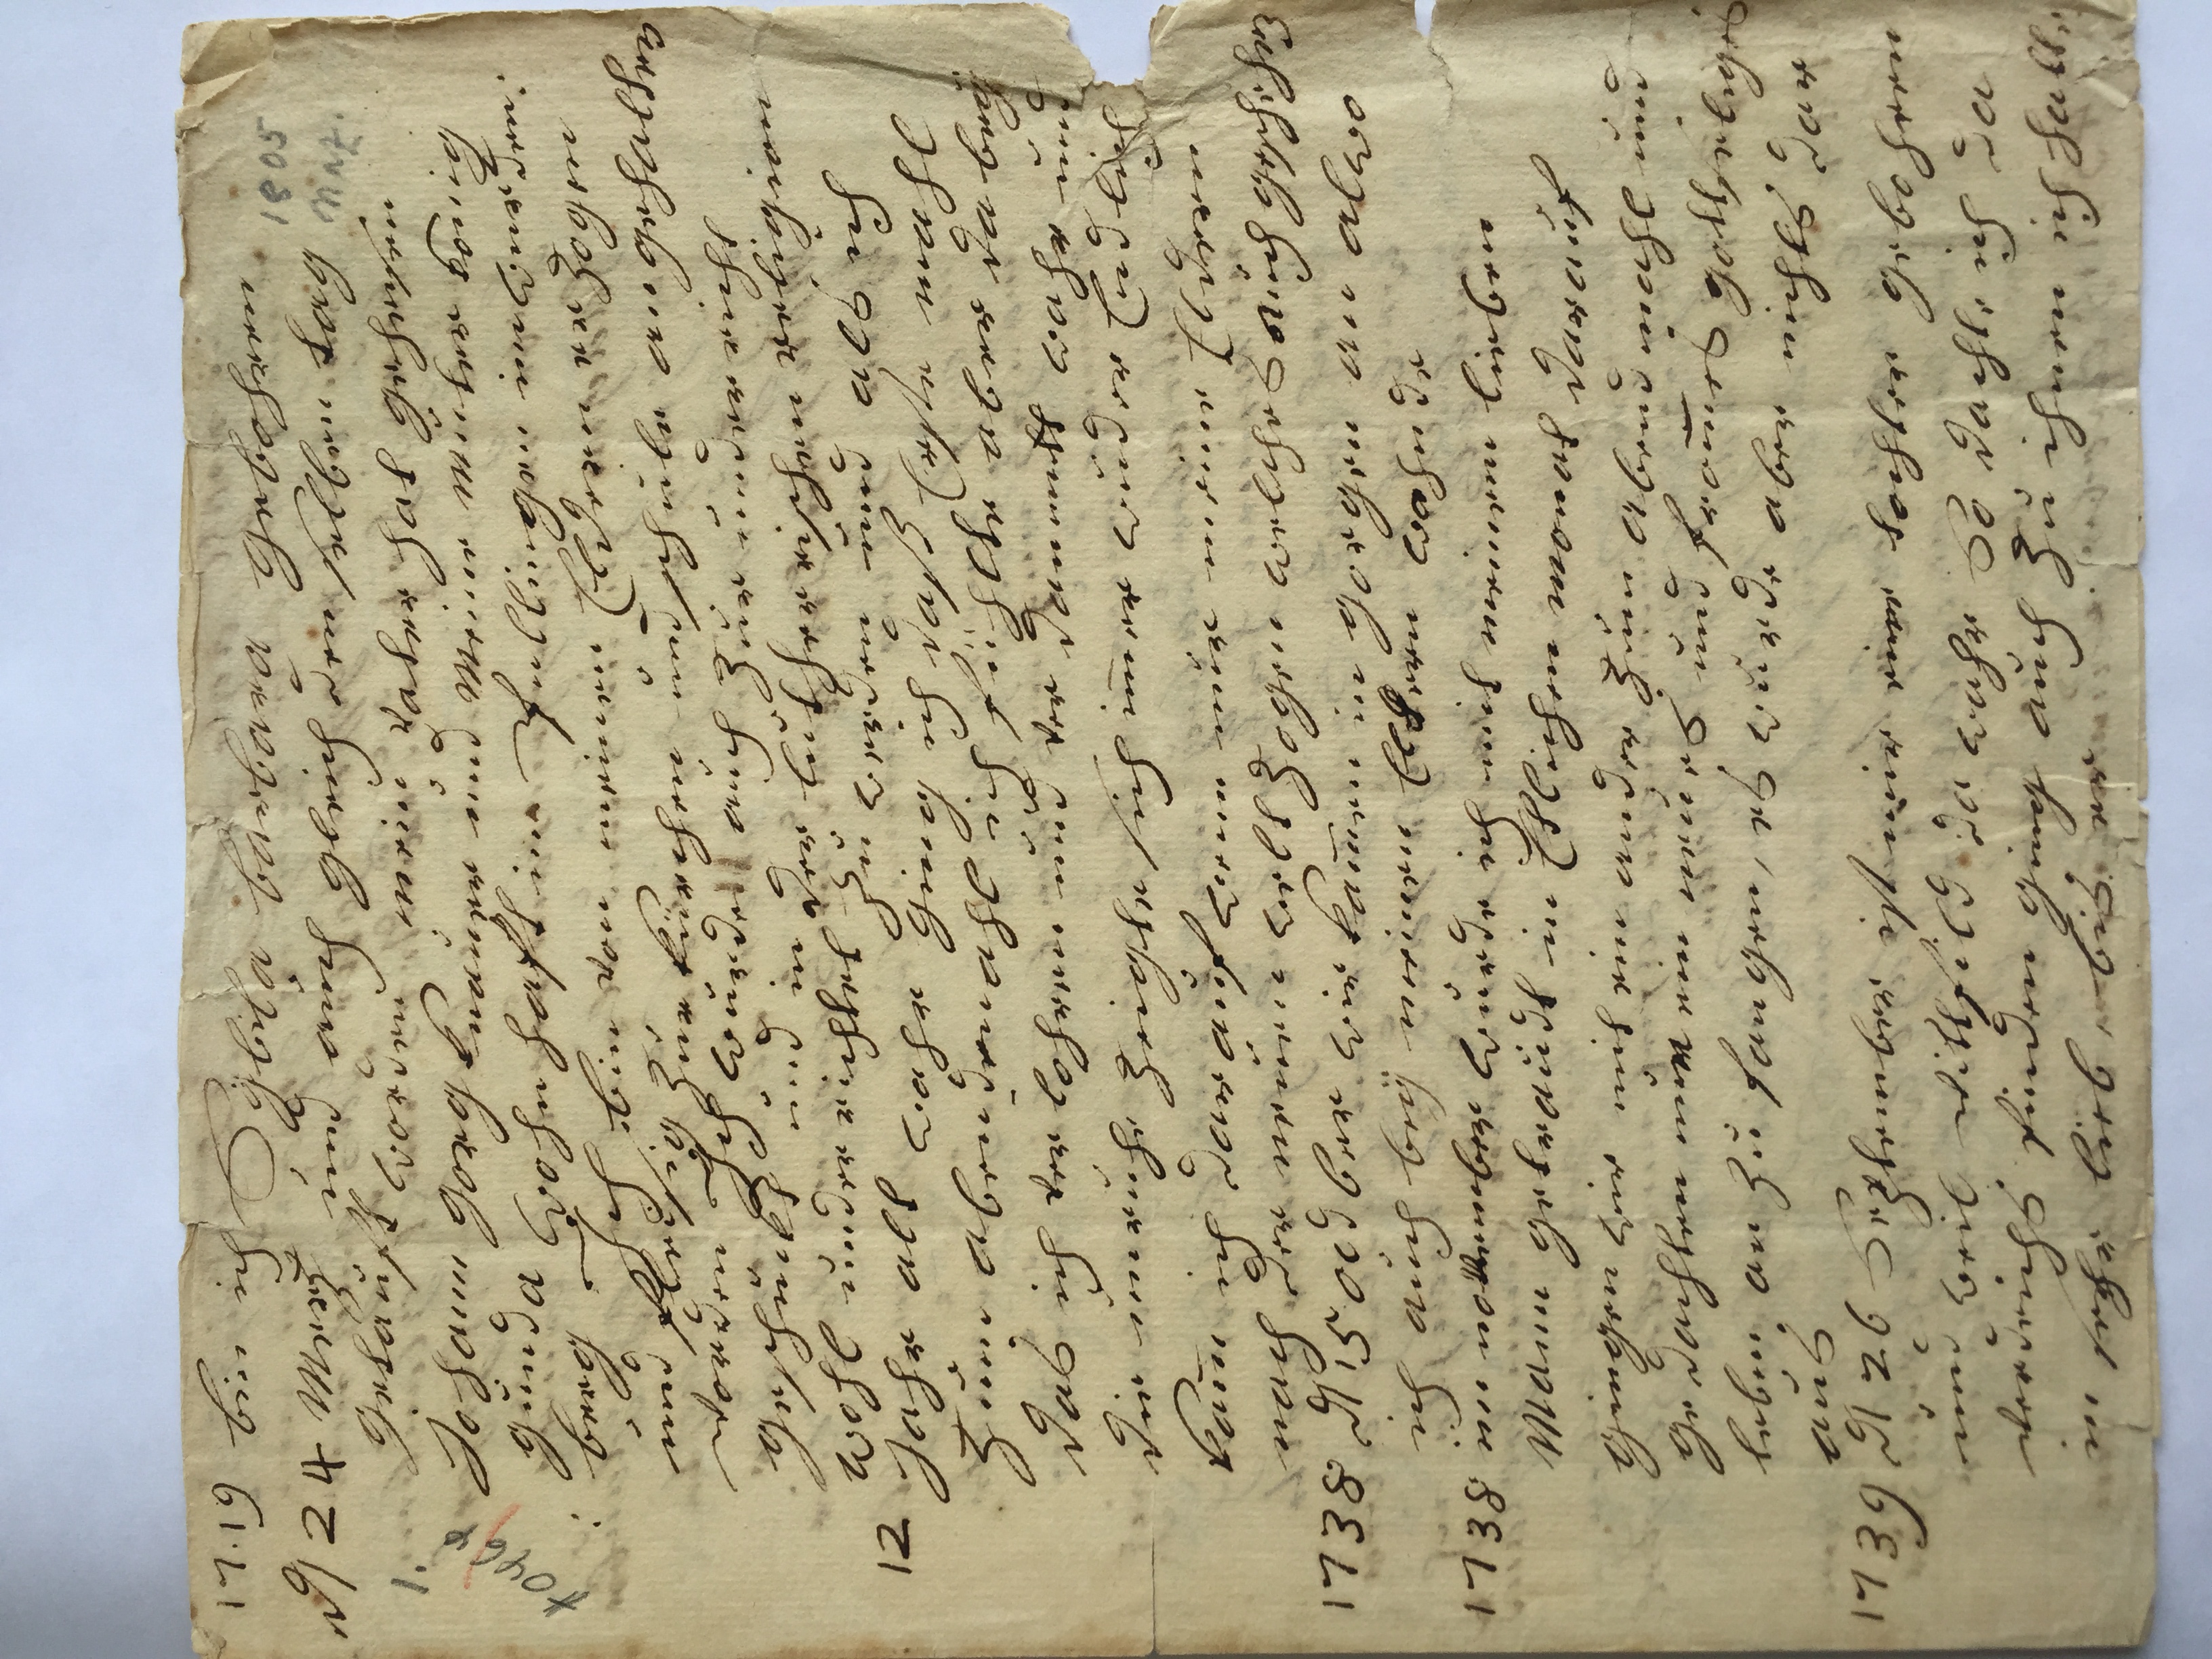 17.19 bin ich Sÿbila barbara gebohren
1805
d 24 Mertz und auch gleich den selben tag
Naz.
getauft worden mein vater hat geheisen
1.
Johann gorg knauer und meine muter konig
#0464
gunda wohn haft im fullingen im wurden:
: berg Ich bin von meinen Eldern er zogen
und fleisig zur kürchen und schule an gehalten
vorden Ich wurde auch zur under richt
geschückt und in der lutherrischen religion
wohl under richtet zu werden und als ich
12 Jahr alt wahr ging ich daß Erste mahl
zum abendemahl ich fühlte aber da beÿ
das ich ver lohren und ver dammtt wahr und
die unruhe zeigte sich im̄er wider Endlich
kam̄ ich darauf wenn nur meine Eldern
nach der neuen welt zogen welches auch geschehen
1738 d 15 ocdber wir kam̄en in gorgen an alwo
ich auch beÿ meinen Eldern wohnde
1738 im november wurde ich mit meinem lieben
Mann getraudt in Etlichen monat darauf
gingen wir mit ein ander zum abend mahl und
ge dachten nun ein neues und from̄es gottseliges
leben an zu fangen, es wurde aber nichts dar
aus
1739 d 26 September ist mir eine tochter gebohren
und weil vittfild da wahr So dachte ich da
verdeichs finden ging auch zu ihnen ich hatte
in sehr lieb, bis er